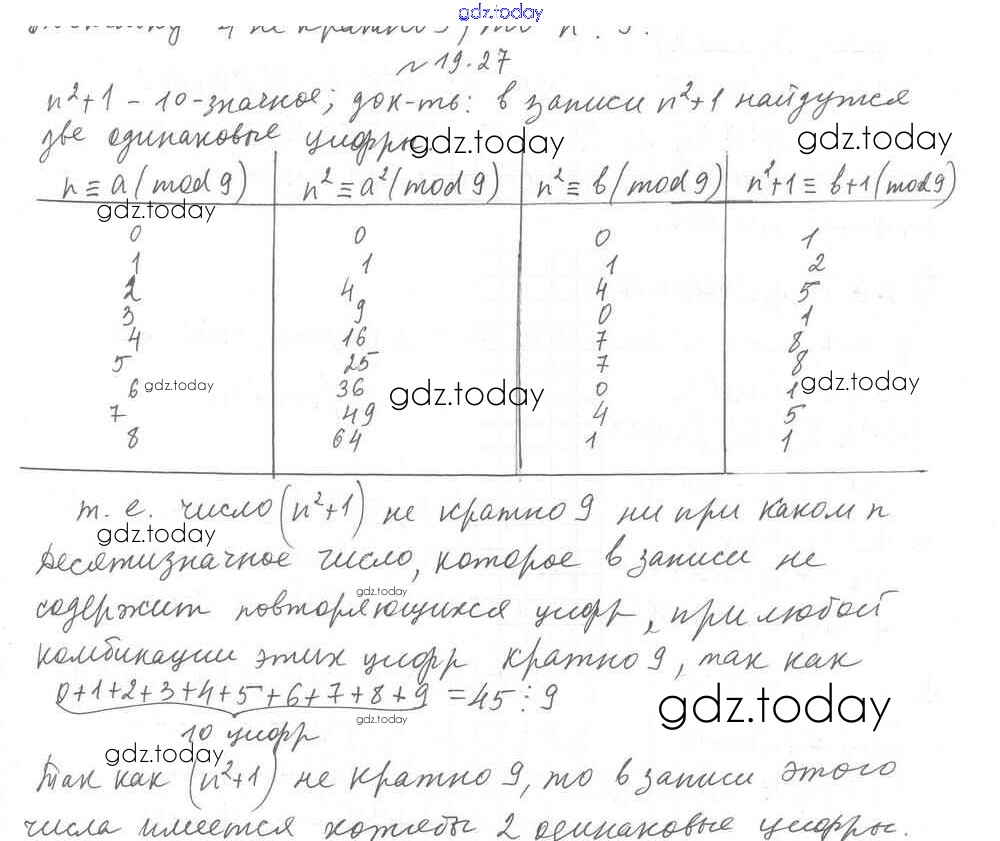 gdz.today
не кратно
№ 19.27
n²+1 – 10-значное; док-ть: в записи n²+1 найдутся
две одинаковые цифры.
gdz.today gdz.today
n ≡ a (mod 9) n² ≡ a² (mod 9) n² ≡ b (mod 9) n²+1 ≡ b+1 (mod 9)
gdz.today
0 0 0 1
1 1 1 2
2 4 4 5
3 9 0 1
4 16 7 8
5 25 7 8
6 36 0 1
gdz.today gdz.today gdz.today
7 49 4 5
8 64 1 1
т. е. число (n²+1) не кратно 9 ни при каком n
gdz.today
Десятизначное число, которое в записи не
gdz.today
содержит повторяющихся цифр, при любой
комбинации этих цифр кратно 9, так как
0+1+2+3+4+5+6+7+8+9 = 45 ⋮ 9
gdz.today gdz.today
10 цифр
gdz.today
Так как (n²+1) не кратно 9, то в записи этого
числа имеется хотябы 2 одинаковые цифры.